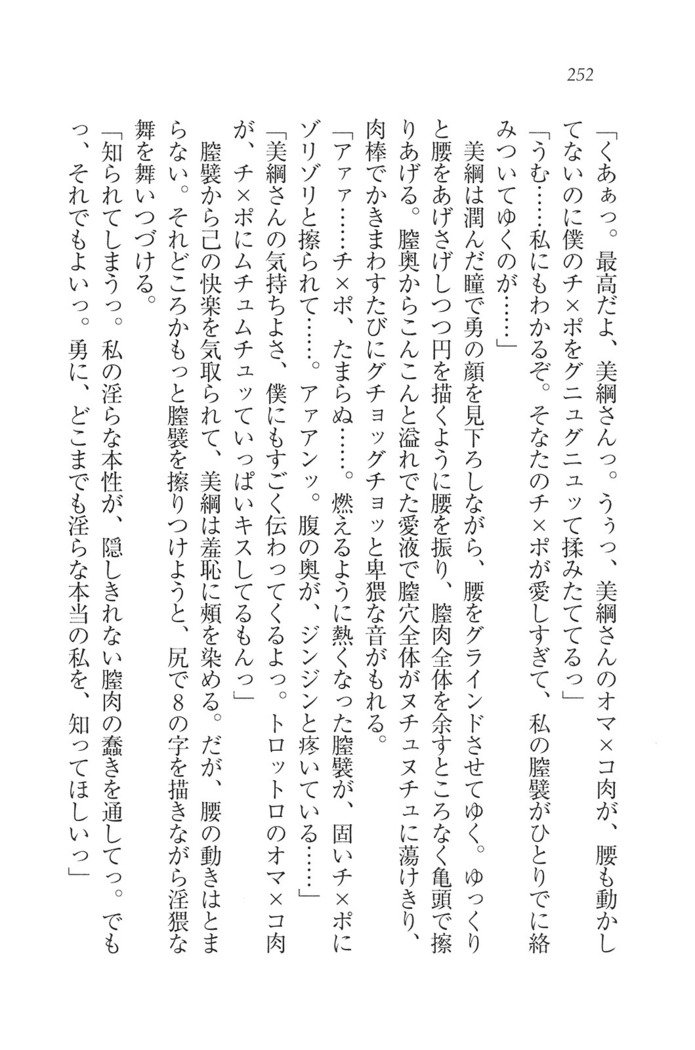 252
「くあぁっ。最高だよ、美綱さんっ。うぅっ、美綱さんのオマ×コ肉が、腰も動かし
てないのに僕のチ×ポをグニュグニュッて揉みたててるっ」
「うむ……私にもわかるぞ。そなたのチ×ポが愛しすぎて、私の膣襞がひとりでに絡
みついてゆくのが……」
　美綱は潤んだ瞳で勇の顔を見下ろしながら、腰をグラインドさせてゆく。ゆっくり
と腰をあげさげしつつ円を描くように腰を振り、膣肉全体を余すところなく亀頭で擦
りあげる。膣奥からこんこんと溢れでた愛液で膣穴全体がヌチュヌチュに蕩けきり、
肉棒でかきまわすたびにグチョッグチョッと卑猥な音がもれる。
「アァァ……チ×ポ、たまらぬ……。燃えるように熱くなった膣襞が、固いチ×ポに
ゾリゾリと擦られて……。アァアンッ。腹の奥が、ジンジンと疼いている……」
「美綱さんの気持ちよさ、僕にもすごく伝わってくるよっ。トロットロのオマ×コ肉
が、チ×ポにムチュムチュッていっぱいキスしてるもんっ」
　膣襞から己の快楽を気取られて、美綱は羞恥に頬を染める。だが、腰の動きはとま
らない。それどころかもっと膣襞を擦りつけようと、尻で８の字を描きながら淫猥な
舞を舞いつづける。
「知られてしまうっ。私の淫らな本性が、隠しきれない膣肉の蠢きを通してっ。でも
っ、それでもよいっ。勇に、どこまでも淫らな本当の私を、知ってほしいっ」